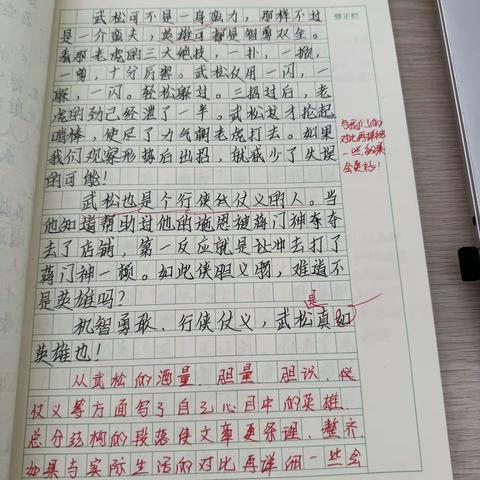 修正栏
武松可不是一身蛮力，那样不过
是一个莽夫，英雄可都是智勇双全。
看那老虎的三大绝技，一扑，一掀，
一剪，十分厉害。武松仅用一闪，一
躲，一闪。轻松躲过。三招过后，老
虎的劲已经泄了一半。武松这才抡起
哨棒，使尽了力气朝老虎打去。如果
我们观察形势后出招，就减少了失误
的可能！
武松也是个行侠仗义的人。当
他知道帮助过他的施恩被蒋门神夺
去了店铺，第一反应就是 冲去打了
蒋门神一顿。如此侠胆义 ，难道不
是英雄吗？
机智勇敢、行侠仗义，武松真是
英雄也！
与我们的
对比再详细
一些，效果
会更好！
从武松的酒量、胆量、胆识、仗
仗义等方面写了自己心目中的英雄
总分结构的段落使文章更条理、整齐
如果与实际生活的对比再详细一些会